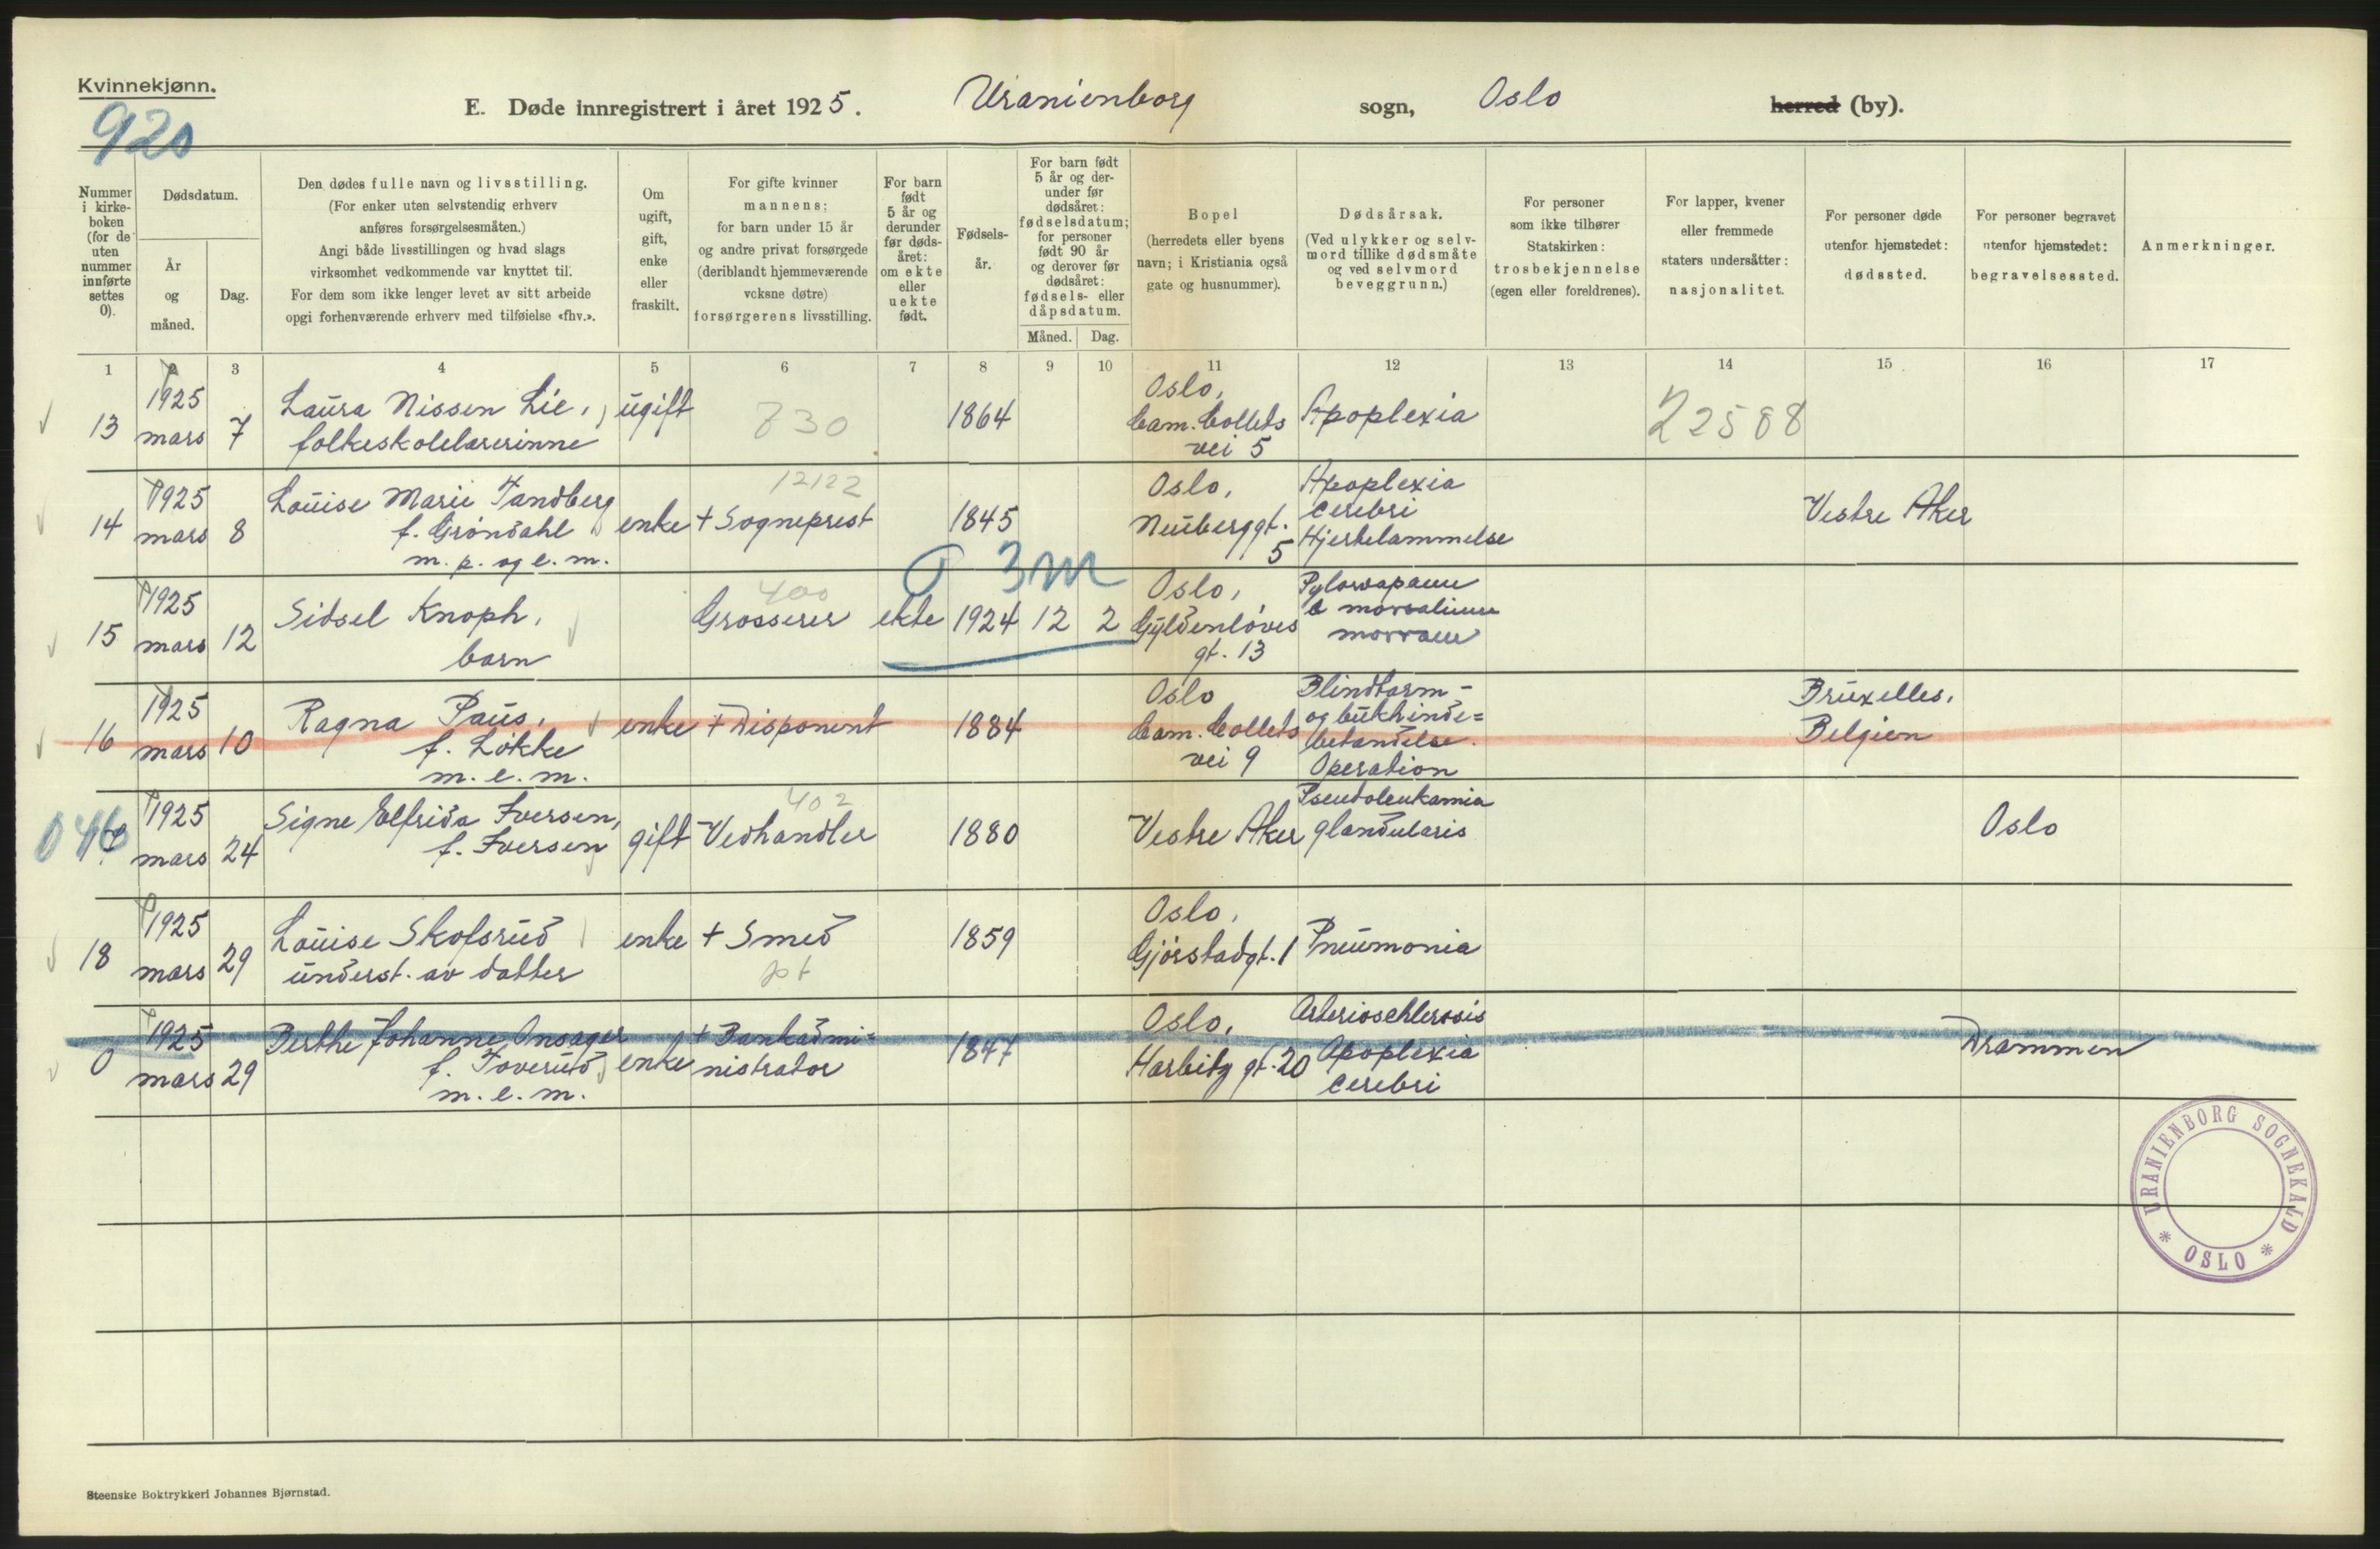 Kvinnekjønn.
920
E. Døde innregistrert i året 1925. Uranienborg sogn, Oslo herred (by).
Nummer i kirkeboken (for de uten nummer innførte settes 0).
Dødsdatum.
År og måned.
Dag.
Den dødes fulle navn og livsstilling.
(For enker uten selvstendig erhverv
anføres forsørgelsesmåten.)
Angi både livsstillingen og hvad slags
virksomhet vedkommende var knyttet til.
For dem som ikke lenger levet av sitt arbeide
opgi forhenværende erhverv med tilføielse «fhv.».
Om
ugift,
gift,
enke
eller
fraskilt.
For gifte kvinner
mannens;
for barn under 15 år
og andre privat forsørgede
(deriblandt hjemmeværende
voksne døtre)
forsørgerens livsstilling.
For barn
født
5 år og
derunder
før døds-
året:
om ekte
eller
uekte
født.
Fødsels-
år.
For barn født
5 år og der-
under før
dødsåret:
fødselsdatum;
for personer
født 90 år
og derover før
dødsåret:
fødsels- eller
dåpsdatum.
Måned. Dag.
Bopel
(herredets eller byens
navn; i Kristiania også
gate og husnummer).
Dødsårsak.
(Ved ulykker og selv-
mord tillike dødsmåte
og ved selvmord
beveggrunn.)
For personer
som ikke tilhører
Statskirken:
trosbekjennelse
(egen eller foreldrenes).
For lapper, kvener
eller fremmede
staters undersåtter:
nasjonalitet.
For personer døde
utenfor hjemstedet:
dødssted.
For personer begravet
utenfor hjemstedet:
begravelsessted.
Anmerkninger.
1 2 3 4 5 6 7 8 9 10 11 12 13 14 15 16 17
13 1925 mars 7 Laura Nissen Lie, folkeskolelærerinne ugift 830 1864 Oslo, Cam. Colletts vei 5 Apoplexia 22588
14 1925 mars 8 Louise Marie Tandberg f. Gröndahl m. p. og e. m. enke + Sogneprest 12122 1845 Oslo, Neuberggt. 5 Apoplexia cerebri Hjertelammelse Vestre Aker
3m
15 1925 mars 12 Sidsel Knoph, barn Grosserer 400 ekte 1924 12 2 Oslo, Gyldenløves gt. 13
16 1925 mars 10 Ragna Paus, f. Løkke m. e. m. enke + Disponent 1884 Oslo Cam. Colletts vei 9 Blindtarm- og bukhinde= betændelse. Operation Bruxelles, Belgien
046 1925 mars 24 Signe Elfrida Iversen, f. Iversen gift Vedhandler 402 1880 Vestre Aker Pseudoleukamia glandularis Oslo
18 1925 mars 29 Louise Skofsrud underst. av datter enke + Smed pt 1859 Oslo, Gjörstadgt. 1 Pneumonia
0 1925 mars 29 Berthe Johanne Onsager f. Toverud m. e. m. enke + Bankadmi= nistrator 1847 Oslo, Harbitz gt. 20 Arterioschlerosis Apoplexia cerebri Drammen
* URANIENBORG SOGNEKALD * OSLO
Steenske Boktrykkeri Johannes Bjørnstad.